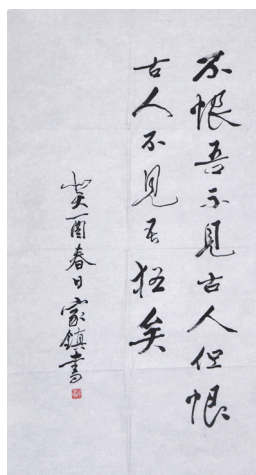 不恨吾不見古人但恨
古人不見吾狂矣
癸酉春日家鎮書